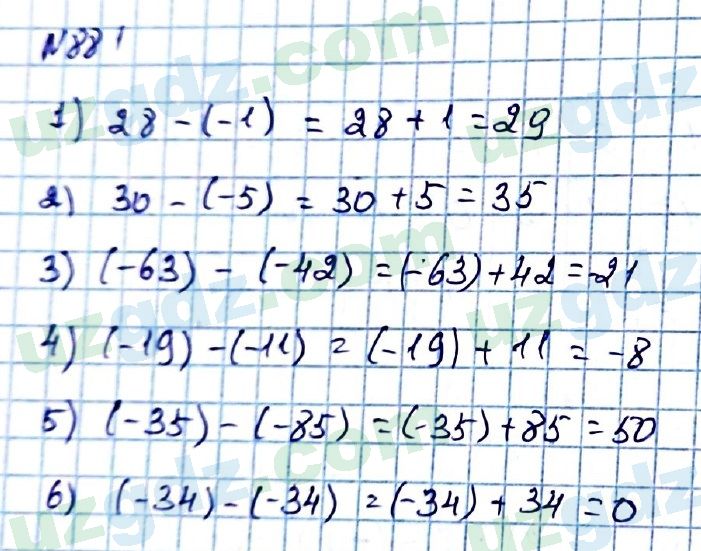 N881
1) 28 - (-1) = 28 + 1 = 29
2) 30 - (-5) = 30 + 5 = 35
3) (-63) - (-42) = (-63) + 42 = -21
4) (-19) - (-11) = (-19) + 11 = -8
5) (-35) - (-85) = (-35) + 85 = 50
6) (-34) - (-34) = (-34) + 34 = 0
uzgdz.com